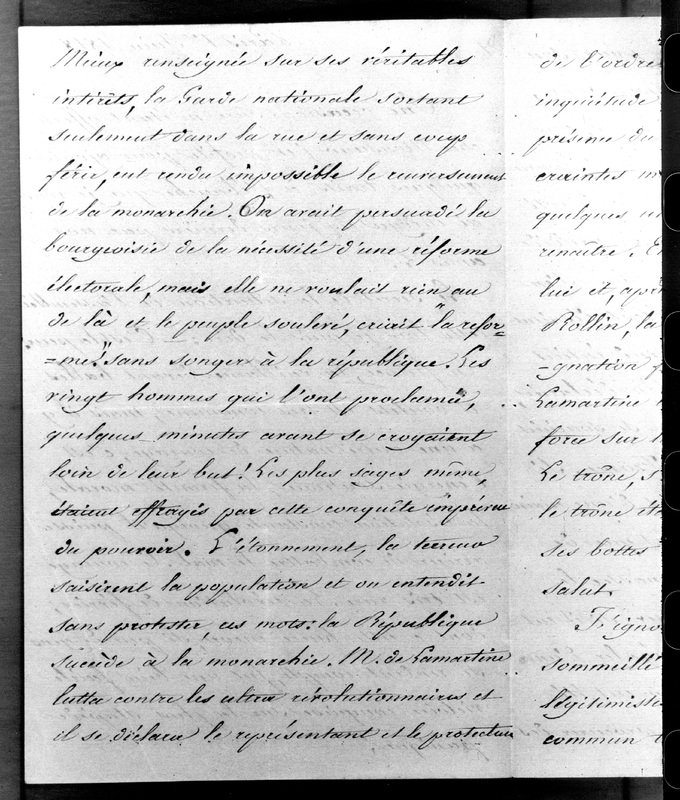 Mieux renseignée sur ses véritables
intérêts, la Garde nationale sortant
seulement dans la rue et sans coup
férir, eut rendu impossible le renversement
de la monarchie. On avait persuadé la
bourgeoisie de la nécessité d'une réforme
électorale, mais elle ne voulait rien au
de là et le peuple soulevé, criait "la refor-
=me!" sans songer à la république. Les
vingt hommes qui l'ont proclamée,
quelques minutes avant se croyaient
loin de leur but! Les plus sages même,
étaient effrayés par cette conquête imprévue
du pouvoir. L'étonnement, la terreur
saisirent la population et on entendit
sans protester, ces mots: la République
succède à la monarchie. M. de Lamartine
lutta contre les ultra révolutionnaires et
il se déclara le représentant et le protecteur
de l'ordre
inquiétude
présence du
craintes
quelques
renaître.
lui et, apr
Rollin, la
-gnation
Lamartine
force sur
Le trône,
le trône
ses bottes
salut.
J'igno
sommeillé
légitimiste
commun